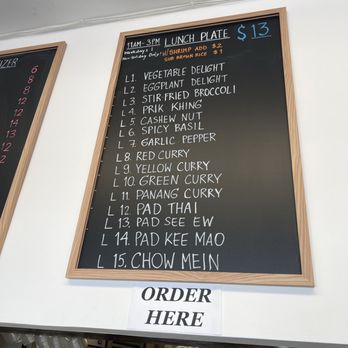 IZER
6
8
8
12
14
13
12
2
11AM-3PM LUNCH PLATE $13
Weekdays &
Non-holiday Only! W/SHRIMP ADD $2
SUB BROWN RICE $1
L1. VEGETABLE DELIGHT
L2. EGGPLANT DELIGHT
L3. STIR-FRIED BROCCOLI
L4. PRIK KHING
L5. CASHEW NUT
L6. SPICY BASIL
L7. GARLIC PEPPER
L8. RED CURRY
L9. YELLOW CURRY
L10. GREEN CURRY
L11. PANANG CURRY
L12. PAD THAI
L13. PAD SEE EW
L14. PAD KEE MAO
L15. CHOW MEIN
ORDER
HERE